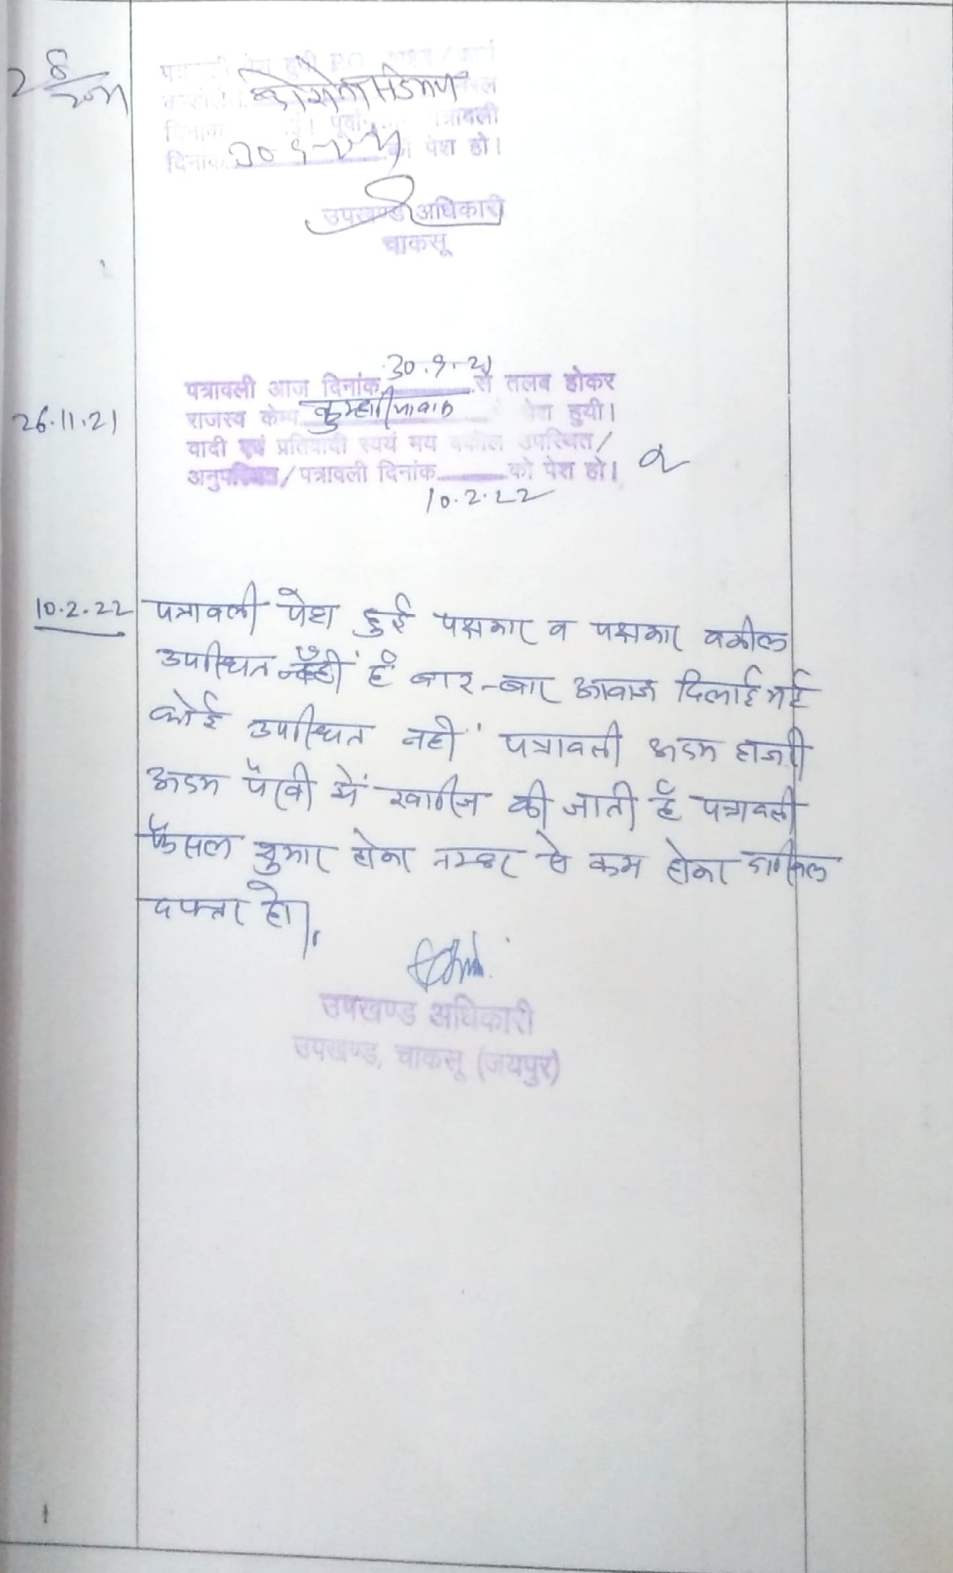 28
पत्रावली पेश हुयी
दिनांक
दिनांक 30.9.21 को पेश हो।
उपखण्ड अधिकारी
चाकसू
30.9.21
पत्रावली आज दिनांक से तलब होकर
26.11.21
राजस्व केम्प पेश हुयी।
वादी एवं प्रतिवादी स्वयं मय वकील उपस्थित/
अनुपस्थित/पत्रावली दिनांक को पेश हो।
10.2.22
10.2.22 पत्रावली पेश हुई पक्षकार व पक्षकार वकील
उपस्थित नहीं है बार-बार आवाज दिलाई गई
कोई उपस्थित नहीं पत्रावली अदम हाजरी
अदम पैरवी में खारिज की जाती है पत्रावली
फैसल शुमार होकर नम्बर से कम होकर दाखिल
दफ्तर हो।
उपखण्ड अधिकारी
उपखण्ड, चाकसू (जयपुर)